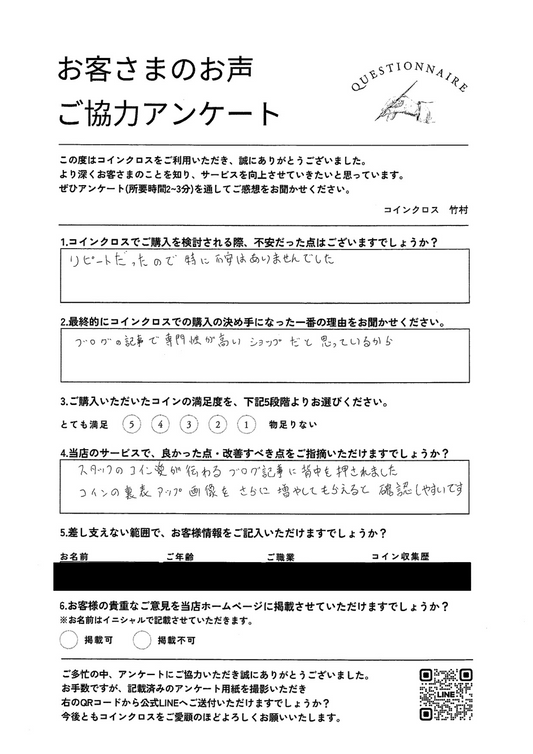 お客さまのお声
ご協力アンケート
QUESTIONNAIRE
この度はコインクロスをご利用いただき、誠にありがとうございました。
より深くお客さまのことを知り、サービスを向上させていきたいと思っています。
ぜひアンケート(所要時間2~3分)を通してご感想をお聞かせください。
コインクロス 竹村
1.コインクロスでご購入を検討される際、不安だった点はございますでしょうか？
リピートだったので 特に 不安はありませんでした
2.最終的にコインクロスでの購入の決め手になった一番の理由をお聞かせください。
ブログの記事で専門性が高い ショップ だと 思っているから
3.ご購入いただいたコインの満足度を、下記5段階よりお選びください。
とても満足 5 4 3 2 1 物足りない
4.当店のサービスで、良かった点・改善すべき点をご指摘いただけますでしょうか？
スタッフのコイン愛が伝わる ブログ記事に背中を押されました
コインの裏表 アップ 画像を さらに 増やしてもらえると 確認しやすいです
5.差し支えない範囲で、お客様情報をご記入いただけますでしょうか？
お名前 ご年齢 ご職業 コイン収集歴
6.お客様の貴重なご意見を当店ホームページに掲載させていただけますでしょうか？
※お名前はイニシャルで記載させていただきます。
掲載可 掲載不可
ご多忙の中、アンケートにご協力いただき誠にありがとうございました。
お手数ですが、記載済みのアンケート用紙を撮影いただき
右のQRコードから公式LINEへご送付いただけますでしょうか？
今後ともコインクロスをご愛顧のほどよろしくお願いいたします。
LINE